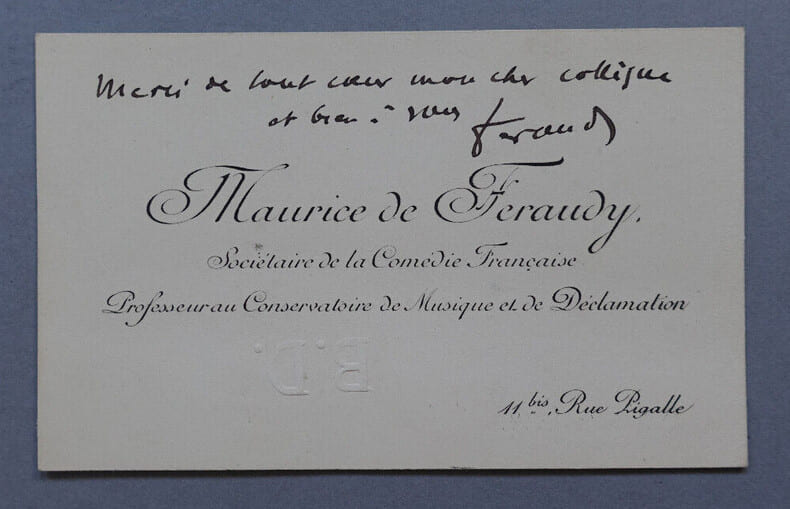 Merci de tout cœur mon cher collègue
et bien à vous Feraudy
Maurice de Feraudy.
Sociétaire de la Comédie Française
Professeur au Conservatoire de Musique et de Déclamation
B.D.
11 bis, Rue Pigalle